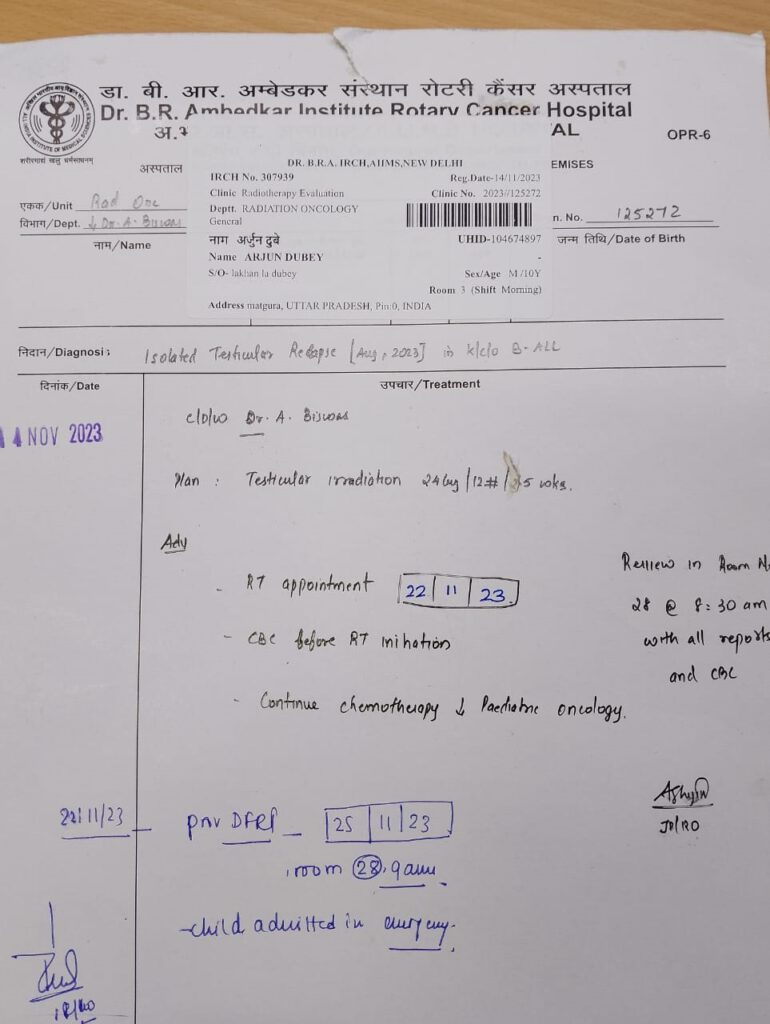 डा. बी. आर. अम्बेडकर संस्थान रोटरी कैंसर अस्पताल
Dr. B.R. Ambedkar Institute Rotary Cancer Hospital
अ.भ
AL
OPR-6
शरीरमाद्यं खलु धर्मसाधनम्
अस्पताल
EMISES
DR. B.R.A. IRCH,AIIMS,NEW DELHI
IRCH No. 307939 Reg.Date-14/11/2023
Clinic Radiotherapy Evaluation Clinic No. 2023//125272
Deptt. RADIATION ONCOLOGY
General
नाम अर्जुन दुबे UHID-104674897
Name ARJUN DUBEY -
S/O- lakhan la dubey Sex/Age M /10Y
Room 3 (Shift Morning)
Address matgura, UTTAR PRADESH, Pin:0, INDIA
एकक/Unit Rad Onc
n. No. 125272
विभाग/Dept. ↓ Dr. A. Biswas
नाम/Name
जन्म तिथि/Date of Birth
निदान/Diagnosis Isolated Testicular Relapse [Aug, 2023] in k/c/o B-ALL
दिनांक/Date उपचार/Treatment
14 NOV 2023
c/d/w Dr. A. Biswas
Plan : Testicular irradiation 24Gy/12#/2.5 wks.
Adv
- RT appointment 22 | 11 | 23
- CBC before RT initiation
- Continue chemotherapy ↓ Paediatric oncology.
Review in Room N
28 @ 8:30 am
with all reports
and CBC
JR/RO
22/11/23 25 | 11 | 23
room 28, 9am
- child admitted in emergency.